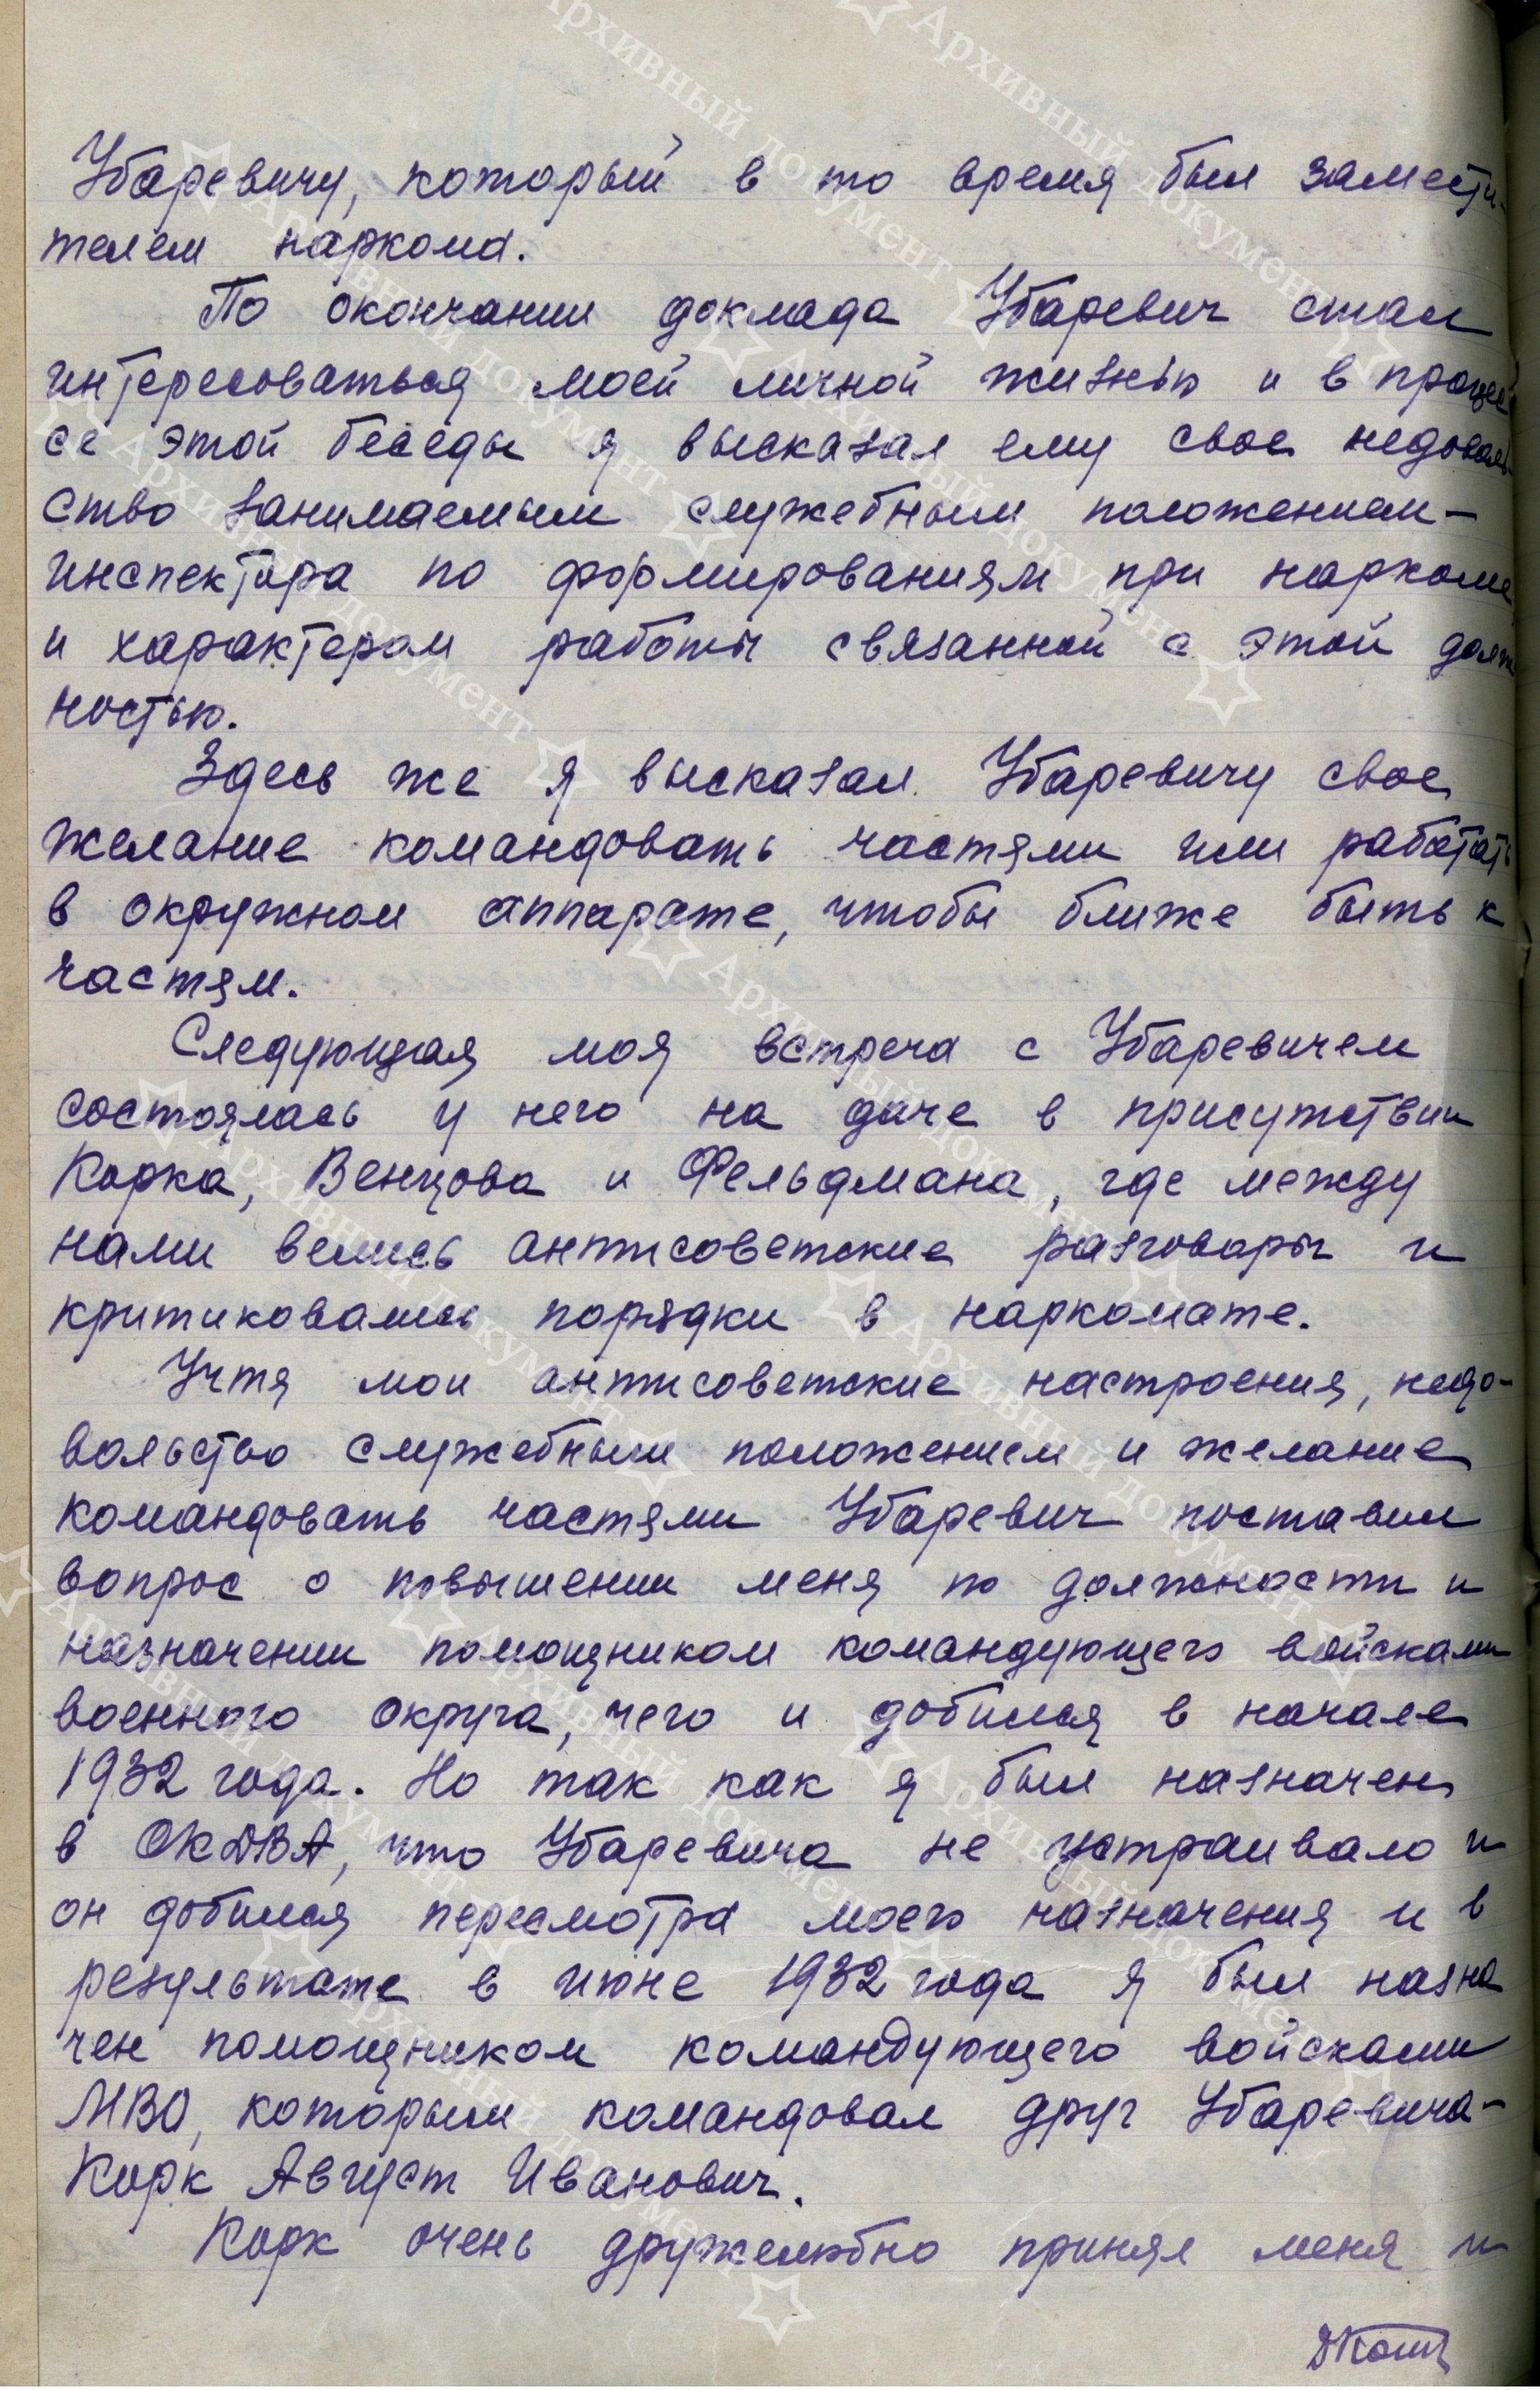 Убаревичу, который в то время был замести-
телем наркома.
По окончании доклада Убаревич стал
интересоваться моей личной жизнью и в процес
се этой беседы я высказал ему свое недоволь
ство занимаемым служебным положением –
инспектора по формированиям при наркоме
и характером работы связанной с этой долж
ностью.
Здесь же я высказал Убаревичу свое
желание командовать частями или работать
в окружном аппарате, чтобы ближе быть к
частям.
Следующая моя встреча с Убаревичем
состоялась у него на даче в присутствии
Корка, Венцова и Фельдмана, где между
нами велись антисоветские разговоры и
критиковались порядки в наркомате.
Учтя мои антисоветские настроения, недо-
вольство служебным положением и желание
командовать частями Убаревич поставил
вопрос о повышении меня по должности и
назначении помощником командующего войсками
военного округа, чего и добился в начале
1932 года. Но так как я был назначен
в ОКДВА, что Убаревича не устраивало и
он добился пересмотра моего назначения и в
результате в июне 1932 года я был назна
чен помощником командующего войсками
МВО, которым командовал друг Убаревича –
Корк Август Иванович.
Корк очень дружелюбно принял меня и
Архивный документ